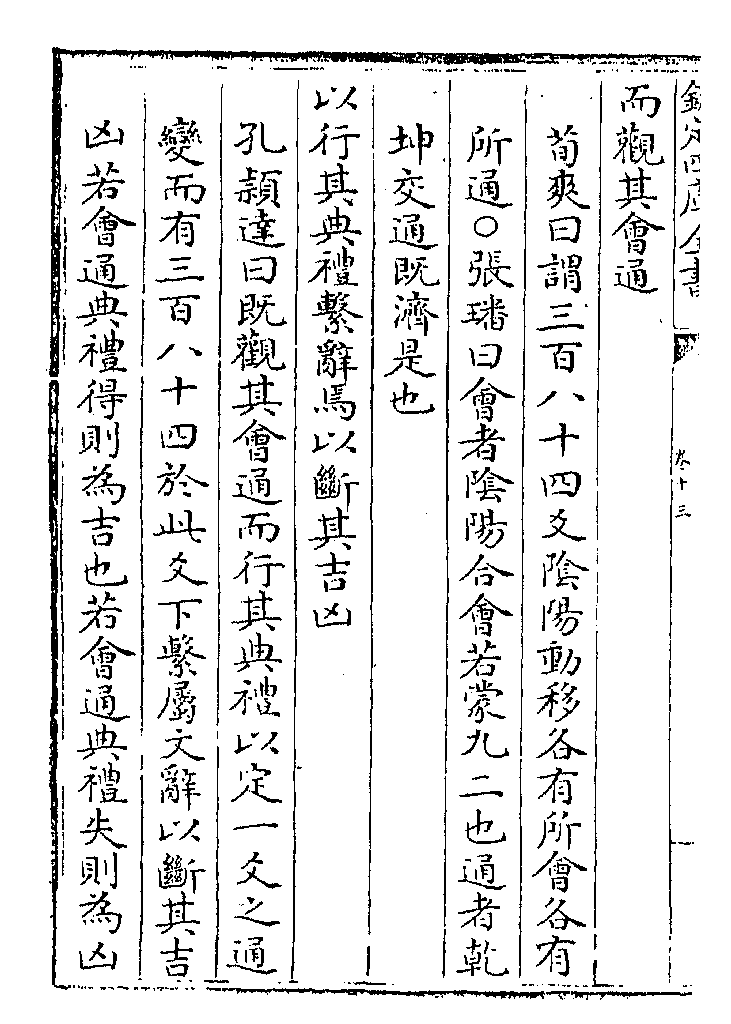 欽定四庫全書
卷十三
而觀其會通
荀爽曰謂三百八十四爻陰陽動移各有所會各有
所通○張璠曰會者陰陽合會若蒙九二也通者乾
坤交通既濟是也
以行其典禮繫辭焉以斷其吉凶
孔頴達曰既觀其會通而行其典禮以定一爻之通
變而有三百八十四於此爻下繫屬文辭以斷其吉
凶若會通典禮得則為吉也若會通典禮失則為凶